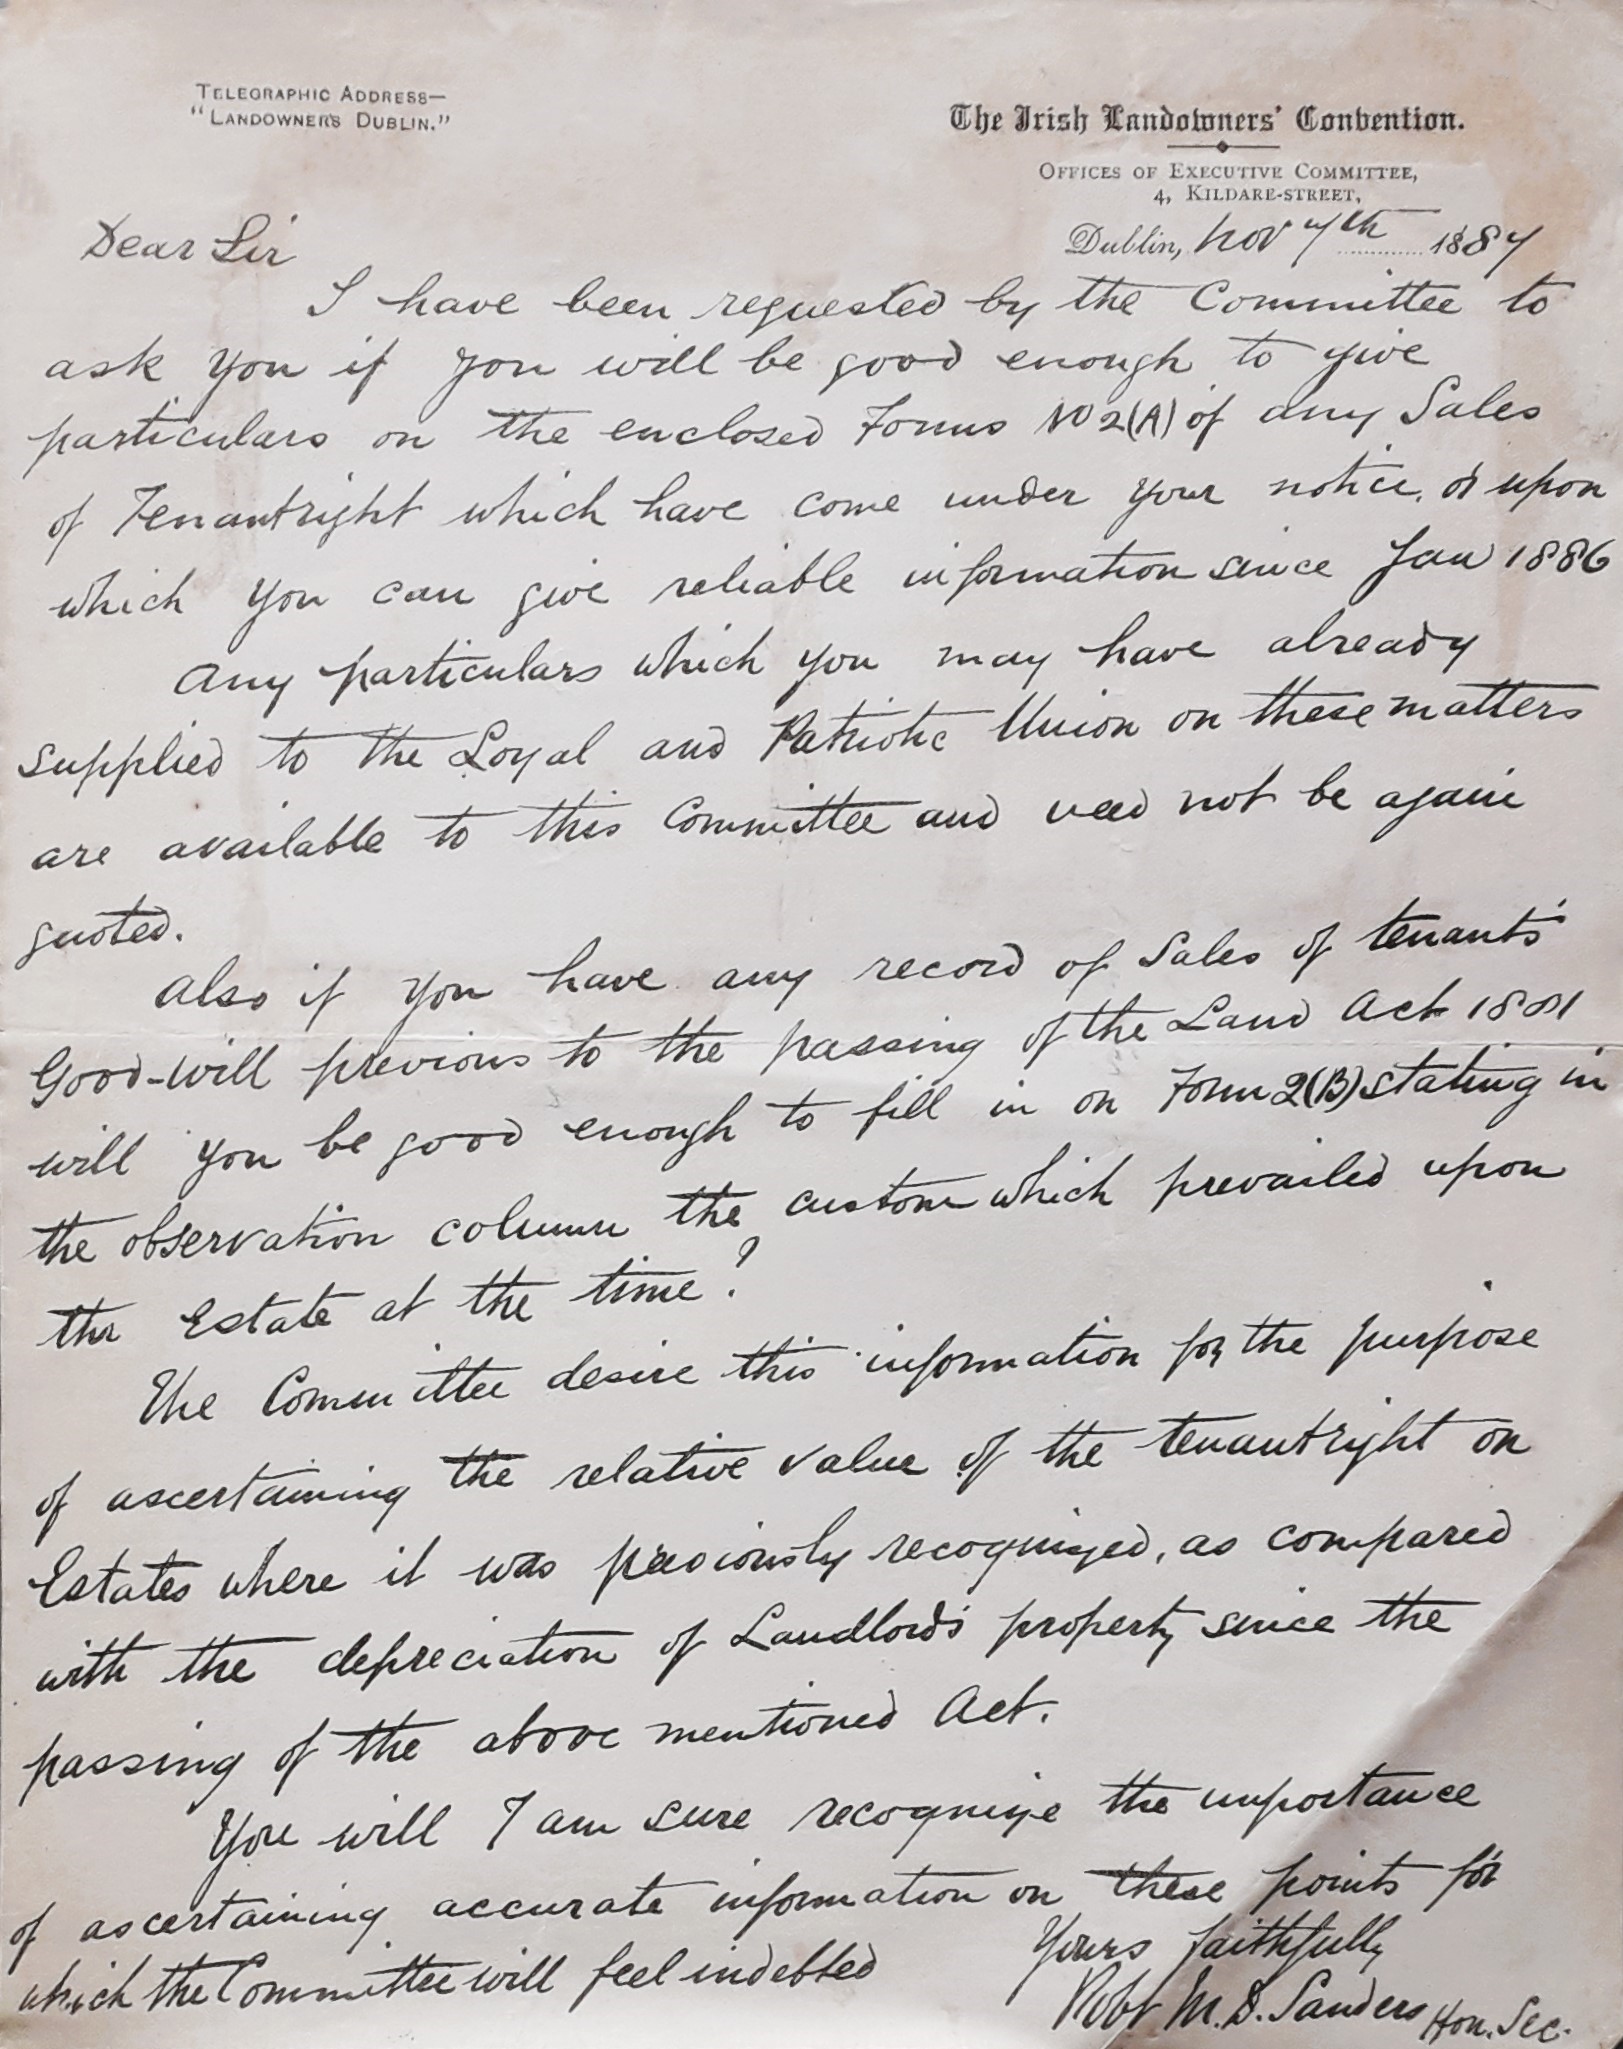 TELEGRAPHIC ADDRESS—
"LANDOWNERS DUBLIN."
The Irish Landowners' Convention.
OFFICES OF EXECUTIVE COMMITTEE,
4, KILDARE-STREET,
Dublin, Nov 7th 1887
Dear Sir
I have been requested by the Committee to
ask you if you will be good enough to give
particulars on the enclosed Forms No 2(A) of any Sales
of Tenantright which have come under your notice, or upon
which you can give reliable information since Jan 1886
Any particulars which you may have already
supplied to the Loyal and Patriotic Union on these matters
are available to this Committee and need not be again
quoted.
Also if you have any record of Sales of tenants'
Good-will previous to the passing of the Land Act 1881
will you be good enough to fill in on Form 2(B) stating in
the observation column the custom which prevailed upon
the Estate at the time?
The Committee desire this information for the purpose
of ascertaining the relative value of the tenantright on
Estates where it was previously recognized, as compared
with the depreciation of Landlord's property since the
passing of the above mentioned Act.
You will I am sure recognize the importance
of ascertaining accurate information on these points for
which the Committee will feel indebted
Yours faithfully
Robt M. D. Sanders Hon. Sec.